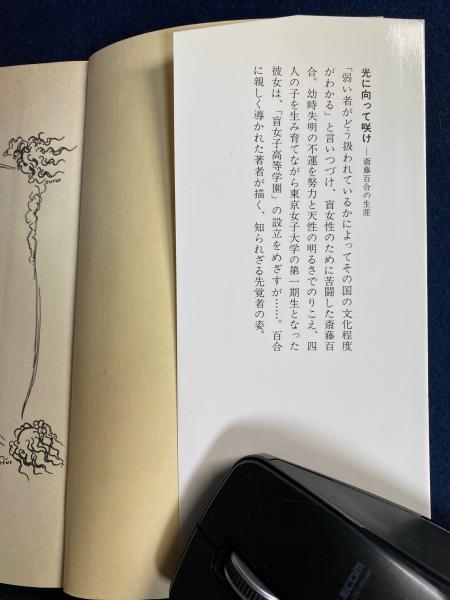 光に向って咲け―斎藤百合の生涯
「弱い者がどう扱われているかによってその国の文化程度
がわかる」と言いつづけ、盲女性のために苦闘した斎藤百
合。幼時失明の不運を努力と天性の明るさでのりこえ、四
人の子を生み育てながら東京女子大学の第一期生となった
彼女は、「盲女子高等学園」の設立をめざすが……。百合
に親しく導かれた著者が描く、知られざる先覚者の姿。